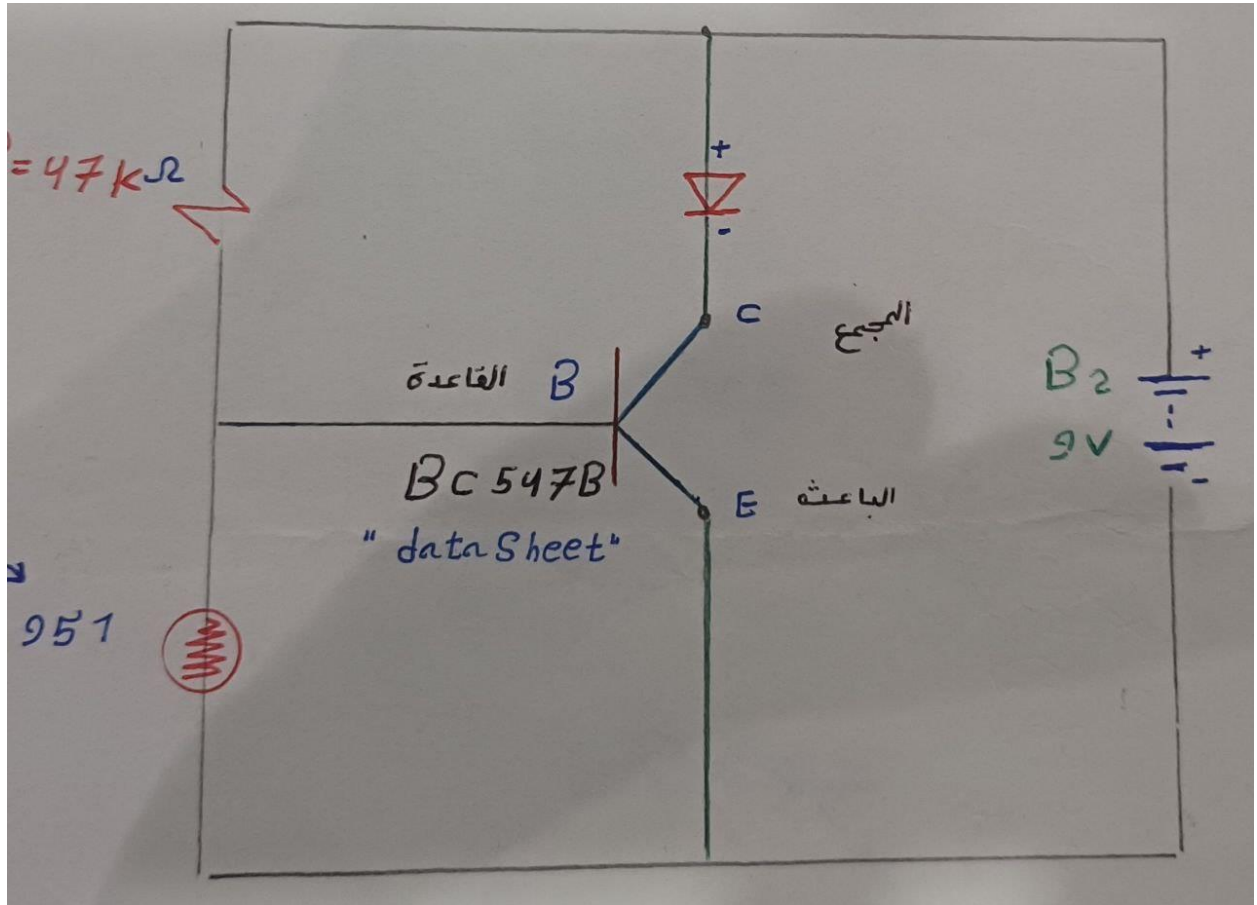 = 47 kΩ
+
-
C
المجمع
القاعدة B
BC 547B
"data Sheet"
E الباعثة
B2
9V
+
-
951